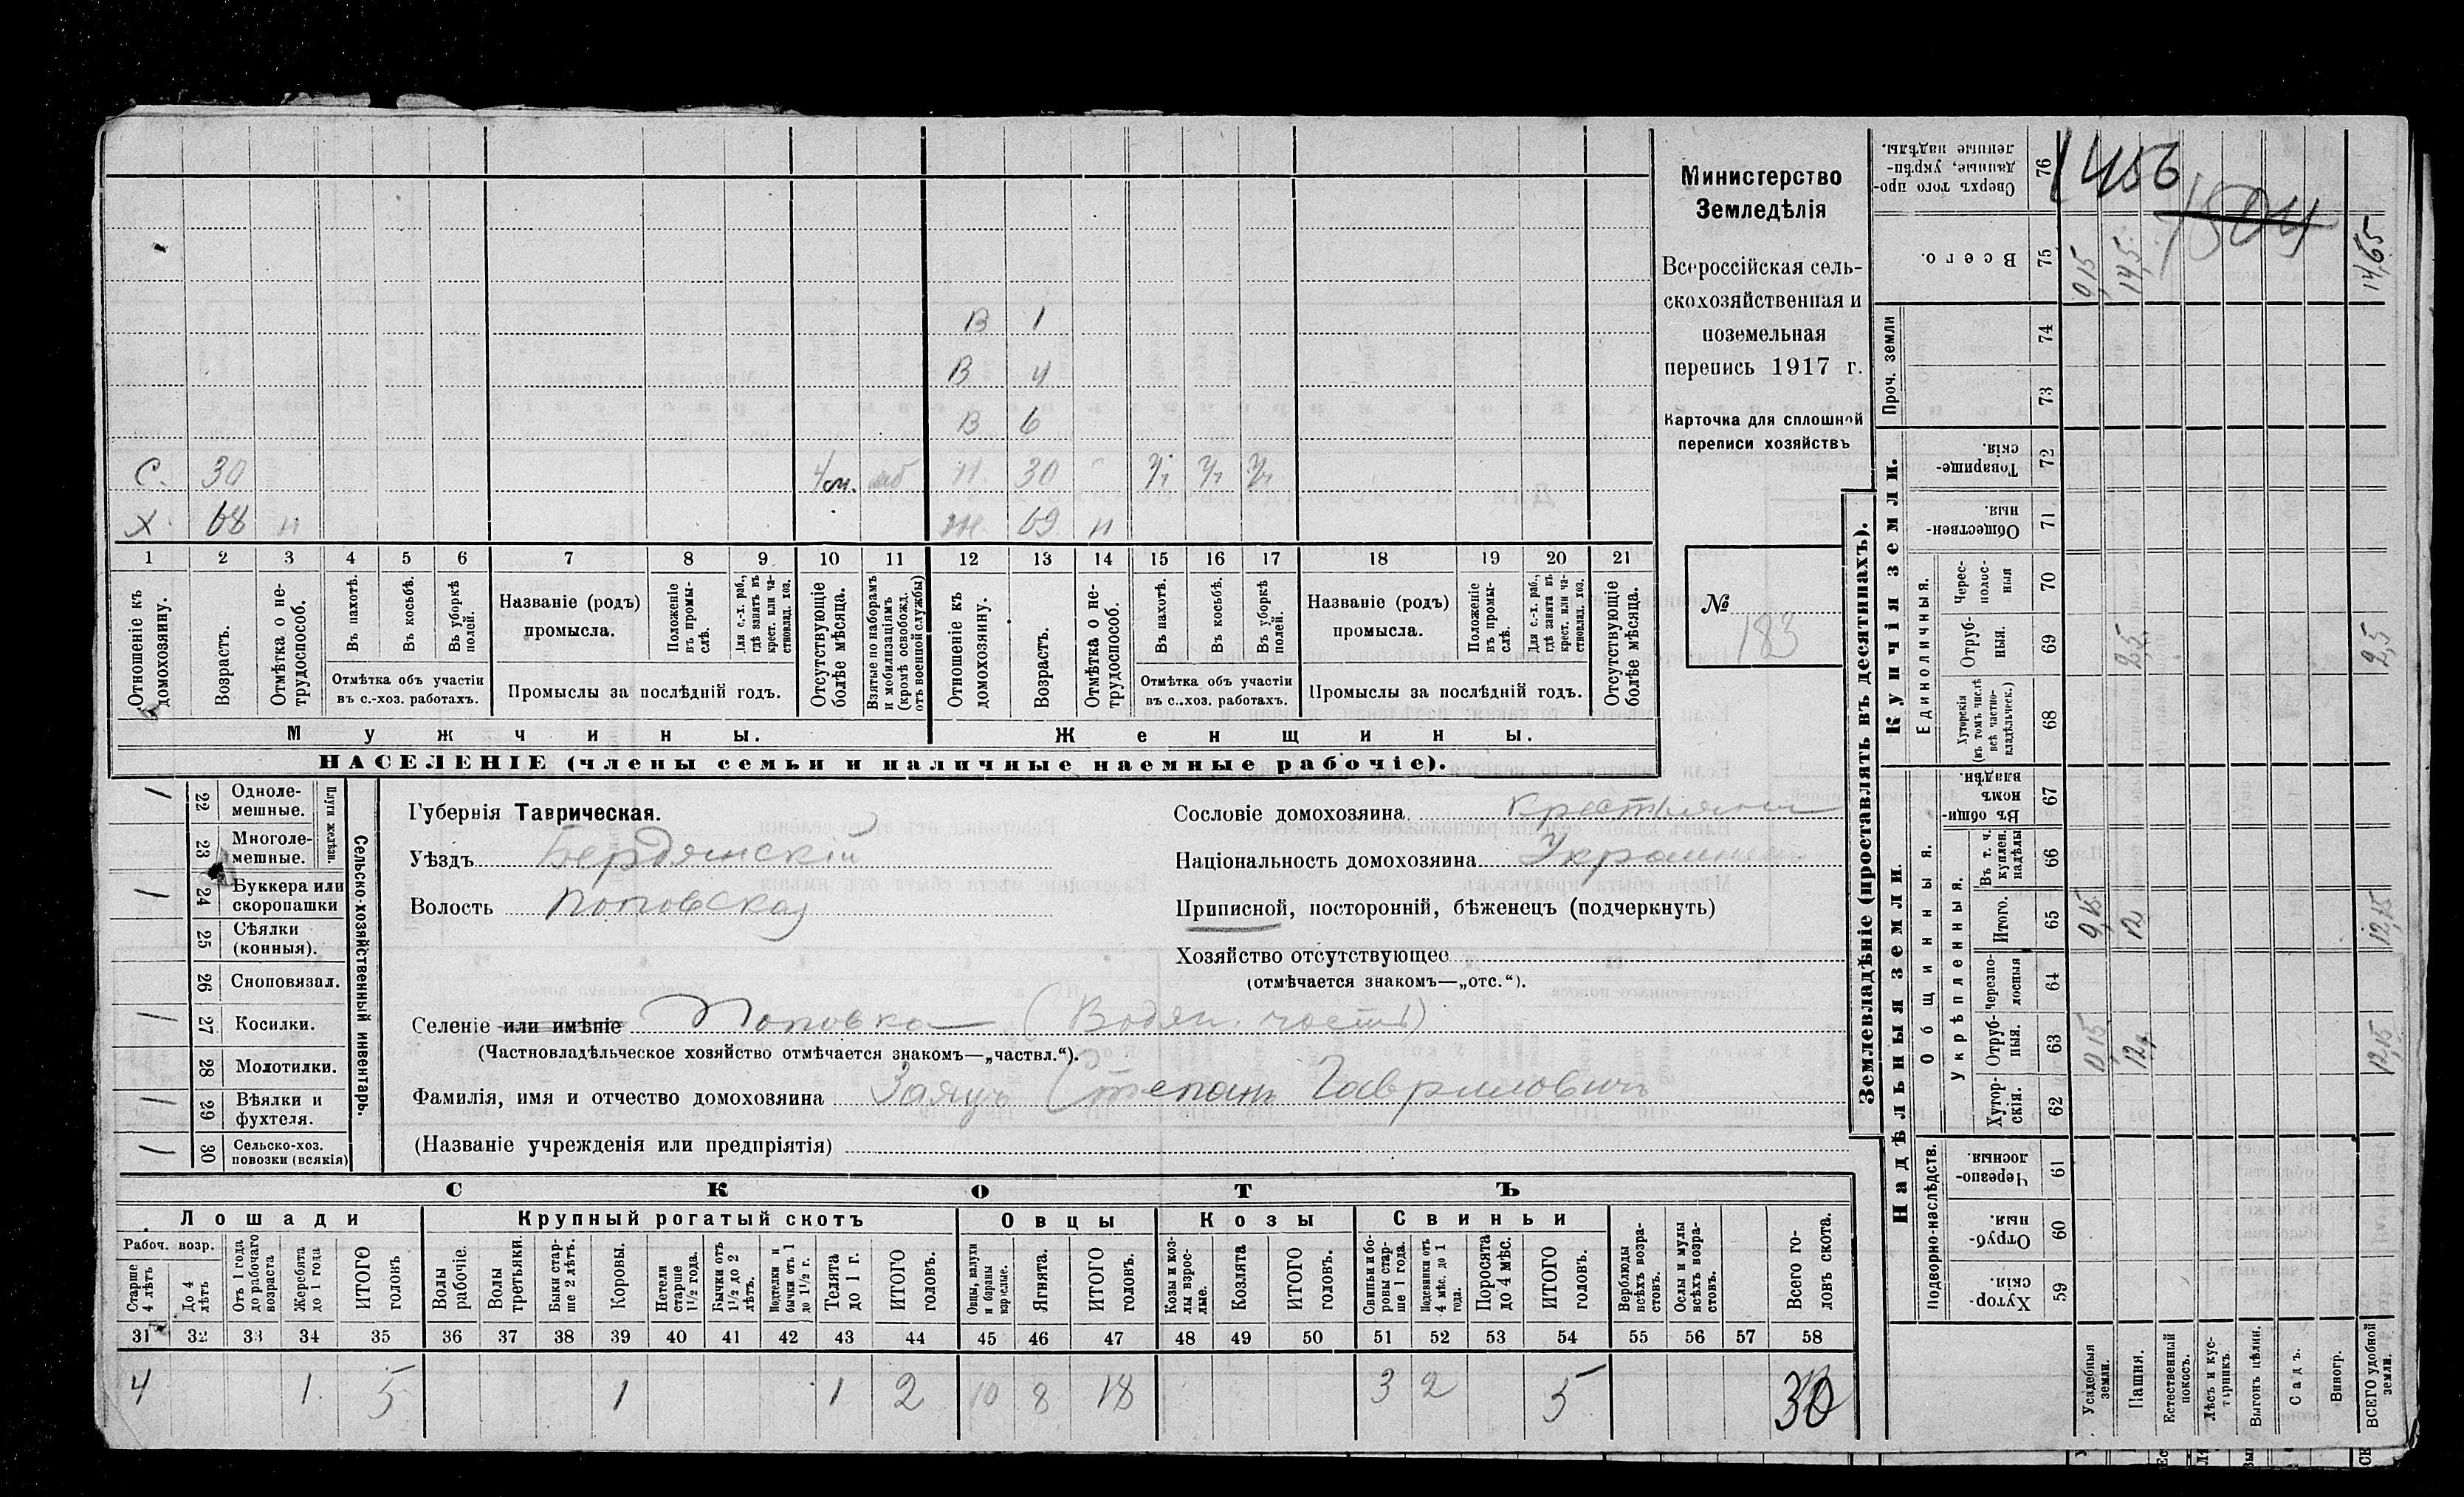 Министерство
Земледѣлія
Всероссійская сель-
скохозяйственная и
поземельная
перепись 1917 г.
Карточка для сплошной
переписи хозяйствъ
№
183
В 1
В 4
В 6
С. 30 Н. 30 Ч Ч Ч
Х. 68 н Ж 69 н
1 2 3 4 5 6 7 8 9 10 11 12 13 14 15 16 17 18 19 20 21
Отношеніе къ домохозяину.
Возрастъ.
Отмѣтка о не-трудоспособ.
Въ пахотѣ.
Въ косьбѣ.
Въ уборкѣ полей.
Отмѣтка объ участіи
въ с.-хоз. работахъ.
Названіе (родъ)
промысла.
Положеніе въ промы-слѣ.
Для с.-х. раб., гдѣ занятъ въ крест. или ча-стновлад. хоз.
Промыслы за послѣдній годъ.
Отсутствующіе болѣе мѣсяца.
Взятые по наборамъ и мобилизаціямъ (кромѣ освобожд. отъ военной службы)
Отношеніе къ домохозяину.
Возрастъ.
Отмѣтка о не-трудоспособ.
Въ пахотѣ.
Въ косьбѣ.
Въ уборкѣ полей.
Отмѣтка объ участіи
въ с.-хоз. работахъ.
Названіе (родъ)
промысла.
Положеніе въ промы-слѣ.
Для с.-х. раб., гдѣ занята въ крест. или ча-стновлад. хоз.
Промыслы за послѣдній годъ.
Отсутствующіе болѣе мѣсяца.
Мужчины.
Женщины.
НАСЕЛЕНІЕ (члены семьи и наличные наемные рабочіе).
Сельско-хозяйственный инвентарь.
Плуги желѣзн.
1 22 Одноле-мешные.
23 Многоле-мешные.
1 24 Буккера или скоропашки
25 Сѣялки (конныя).
26 Сноповязал.
1 27 Косилки.
28 Молотилки.
1 29 Вѣялки и фухтеля.
1 30 Сельско-хоз. повозки (всякія)
Губернія Таврическая.
Уѣздъ Бердянскій
Волость Поповская
Сословіе домохозяина крестьянинъ
Національность домохозяина Украинецъ
Приписной, посторонній, бѣженецъ (подчеркнуть)
Хозяйство отсутствующее
(отмѣчается знакомъ—„отс.“).
Селеніе или имѣніе Поповка (Водян. часть)
(Частновладѣльческое хозяйство отмѣчается знакомъ—„частвл.“).
Фамилія, имя и отчество домохозяина Заяцъ Степанъ Гавриловичъ
(Названіе учрежденія или предпріятія)
СКОТЪ
Лошади Крупный рогатый скотъ Овцы Козы Свиньи
Рабоч. возр.
Старше 4 лѣтъ
До 4 лѣтъ
Отъ 1 года до рабочаго возраста
Жеребята до 1 года
ИТОГО головъ
Волы рабочіе.
Волы третьяки.
Быки стар-ше 2 лѣтъ.
Коровы.
Нетели старше 1½ года.
Бычки отъ 1½ до 2 лѣтъ.
Подтелки и бычки отъ 1 до 1½ г.
Телята до 1 г.
ИТОГО головъ.
Овцы, валухи и бараны взрослые.
Ягнята.
ИТОГО головъ.
Козы и коз-лы взрос-лые.
Козлята
ИТОГО головъ.
Свиньи и бо-ровы стар-ше 1 года.
Подсвинки отъ 4 мѣс. до 1 года.
Поросята до 4 мѣс.
ИТОГО головъ.
Верблюды всѣхъ возра-стовъ.
Ослы и мулы всѣхъ возра-стовъ.
Всего го-ловъ скота.
31 32 33 34 35 36 37 38 39 40 41 42 43 44 45 46 47 48 49 50 51 52 53 54 55 56 57 58
4 1 5 1 1 2 10 8 18 3 2 5 30
Землевладѣніе (проставлять въ десятинахъ).
Купчія земли.
Надѣльныя земли.
Сверхъ того про-данные, укрѣп-ленные надѣлы. 76
1456
1504
Всего. 75 0,15 14,5 14,65
Проч. земли 74
73
Товарище-скія 72
Обществен-ныя. 71
Единоличныя.
Черес-полос-ныя 70
Отруб-ныя. 69 2,5 2,5
Хуторскія (въ томъ числѣ всѣ частно-владѣльческ.) 68
Общинныя.
Въ общи-номъ владѣн. 67
Укрѣпленныя.
Въ т. ч. куплен. надѣлы 66
Итого. 65 0,15 12 12,15
Черезпо-лосныя 64
Отруб-ныя. 63 0,15 12 12,15
Хутор-скія. 62
Подворно-наслѣдств.
Черезпо-лосныя. 61
Отруб-ныя 60
Хутор-скія. 59
Усадебныя земли.
Пашня.
Естественный покосъ.
Лѣсъ и кус-тарникъ.
Выгонъ цѣлин.
Садъ.
Виногр.
ВСЕГО удобной земли.